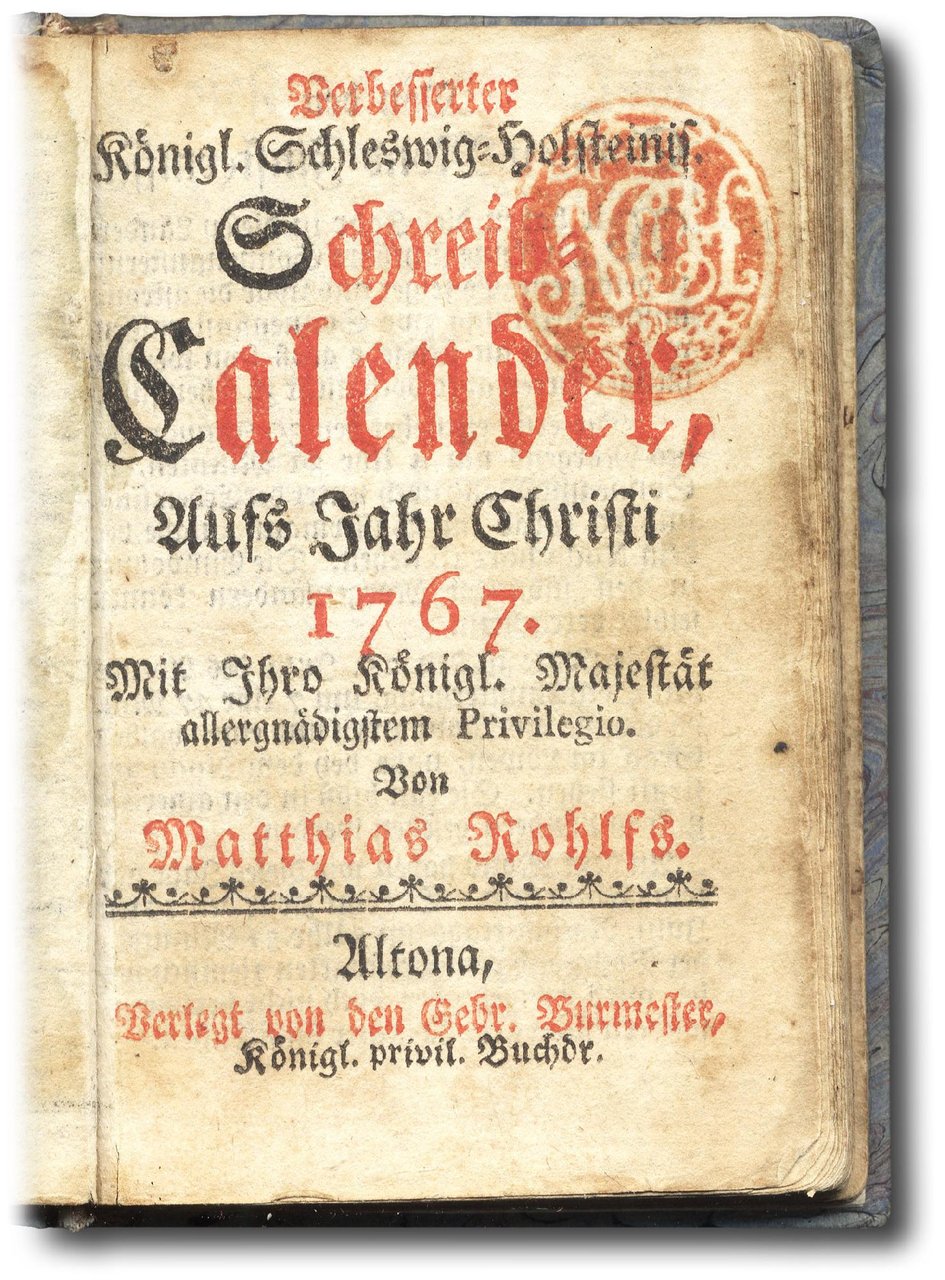 Verbesserter
Königl. Schleswig-Holsteinis.
Schreib-
Calender,
Aufs Jahr Christi
1767.
Mit Ihro Königl. Majestät
allergnädigstem Privilegio.
Von
Matthias Rohlfs.
Altona,
Verlegt von den Gebr. Burmester,
Königl. privil. Buchdr.